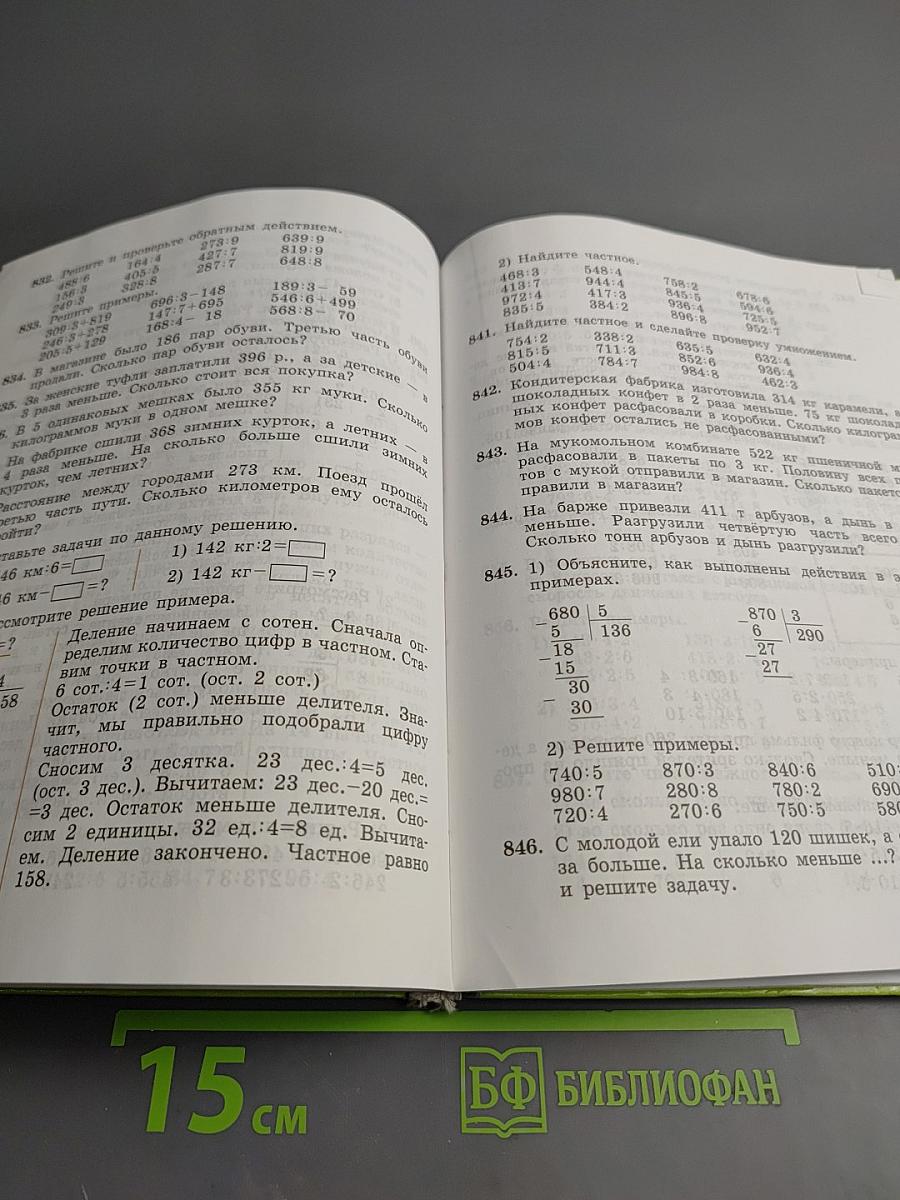 832. Решите и проверьте обратным действием.
488:6 164:4 273:9 639:9
156:3 405:5 427:7 819:9
249:3 328:8 287:7 648:8
833. Решите примеры.
309:3+819 696:3−148 189:3− 59
246:3+278 147:7+695 546:6+499
205:5+129 168:4− 18 568:8− 70
834. В магазине было 186 пар обуви. Третью часть обуви
продали. Сколько пар обуви осталось?
35. За женские туфли заплатили 396 р., а за детские — в
3 раза меньше. Сколько стоит вся покупка?
6. В 5 одинаковых мешках было 355 кг муки. Сколько
килограммов муки в одном мешке?
На фабрике сшили 368 зимних курток, а летних — в
4 раза меньше. На сколько больше сшили зимних
курток, чем летних?
Расстояние между городами 273 км. Поезд прошёл
ретью часть пути. Сколько километров ему осталось
ройти?
ставьте задачи по данному решению.
46 км:6= 1) 142 кг:2=
6 км− =? 2) 142 кг− =?
ссмотрите решение примера.
=?
4
58
Деление начинаем с сотен. Сначала оп-
ределим количество цифр в частном. Ста-
вим точки в частном.
6 сот.:4=1 сот. (ост. 2 сот.)
Остаток (2 сот.) меньше делителя. Зна-
чит, мы правильно подобрали цифру
частного.
Сносим 3 десятка. 23 дес.:4=5 дес.
(ост. 3 дес.). Вычитаем: 23 дес.−20 дес.=
=3 дес. Остаток меньше делителя. Сно-
сим 2 единицы. 32 ед.:4=8 ед. Вычита-
ем. Деление закончено. Частное равно
158.
2) Найдите частное.
468:3 548:4 758:2 678:6
413:7 944:4 845:5 594:6
972:4 417:3 936:4 725:5
835:5 384:2 896:8 952:7
841. Найдите частное и сделайте проверку умножением.
754:2 338:2 635:5 632:4
815:5 711:3 852:6 936:4
504:4 784:7 984:8 462:3
842. Кондитерская фабрика изготовила 314 кг карамели, а
шоколадных конфет в 2 раза меньше. 75 кг шоколад
ных конфет расфасовали в коробки. Сколько килограм
мов конфет остались не расфасованными?
843. На мукомольном комбинате 522 кг пшеничной м
расфасовали в пакеты по 3 кг. Половину всех п
тов с мукой отправили в магазин. Сколько пакето
правили в магазин?
844. На барже привезли 411 т арбузов, а дынь в
меньше. Разгрузили четвёртую часть всего
Сколько тонн арбузов и дынь разгрузили?
845. 1) Объясните, как выполнены действия в э
примерах.
−680 5 −870 3
5 136 6 290
−18 −27
15 27
−30
30
2) Решите примеры.
740:5 870:3 840:6 510:
980:7 280:8 780:2 690
720:4 270:6 750:5 580
846. С молодой ели упало 120 шишек, а
за больше. На сколько меньше ...?
и решите задачу.
15 см
БФ БИБЛИОФАН